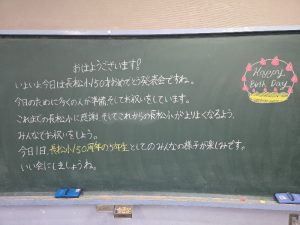 おはようございます!
いよいよ今日は長松小150才おめでとう発表会ですね。
今日のために多くの人が準備をしてお祝いをしています。
これまでの長松小に感謝し、そしてこれからの長松小がより良くなるよう、
みんなでお祝いをしましょう。
今日1日、長松小150周年の5年生としてのみんなの様子が楽しみです。
いい会にしましょうね。
Happy
Birth Day